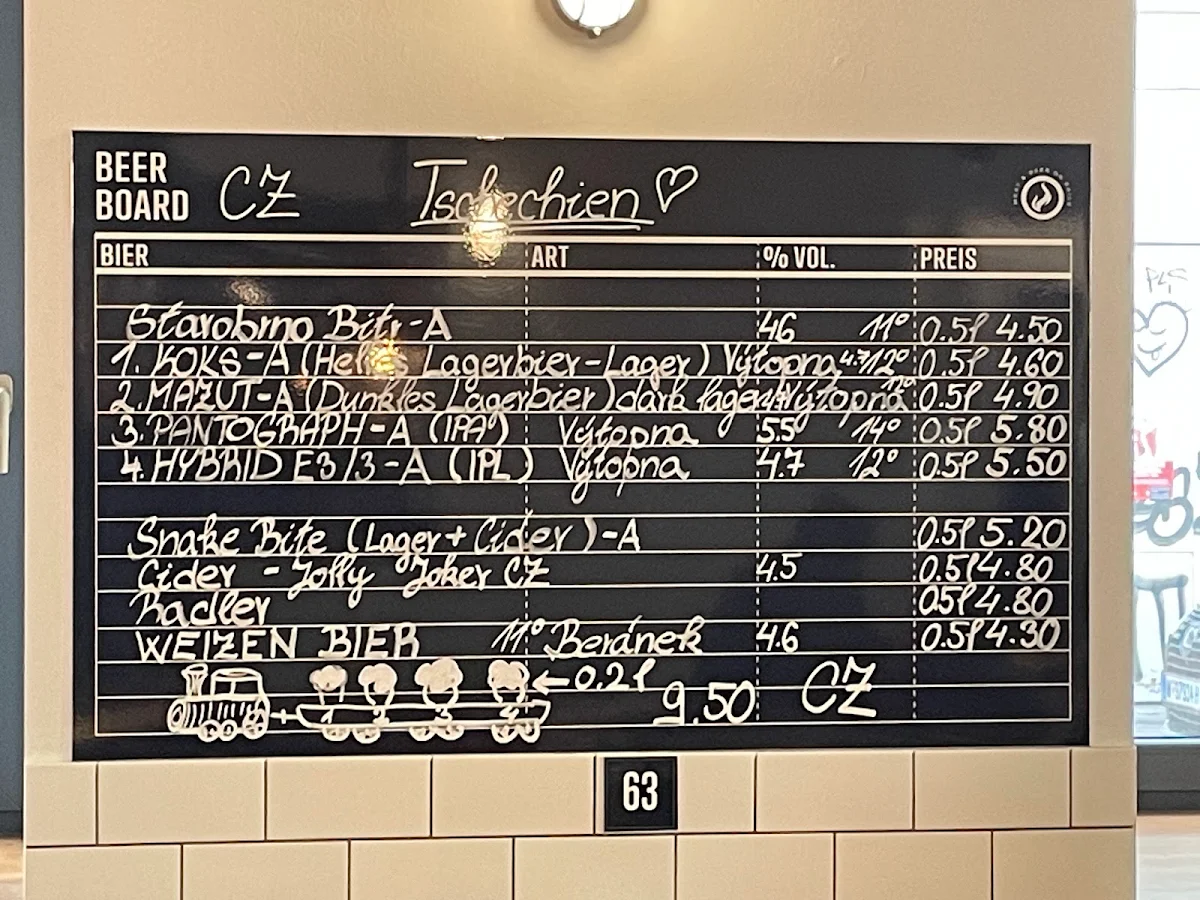 BEER
BOARD CZ Tschechien
BIER ART % VOL. PREIS
Starobrno Bitr-A 46 11° 0.5l 4.50
1. KOKS-A (Helles Lagerbier-Lager) Výtopna 4.7 12° 0.5l 4.60
2. MAZUT-A (Dunkles Lagerbier) dark lager Výtopna 0.5l 4.90
3. PANTOGRAPH-A (IPA) Výtopna 5.5 14° 0.5l 5.80
4. HYBRID E3/3-A (IPL) Výtopna 4.7 12° 0.5l 5.50
Snake Bite (Lager + Cider)-A 0.5l 5.20
Cider - Jolly Joker CZ 4.5 0.5l 4.80
Radler 0.5l 4.80
WEIZEN BIER 11° Beránek 4.6 0.5l 4.30
1 2 3 4 ← 0.2l 9.50 CZ
63